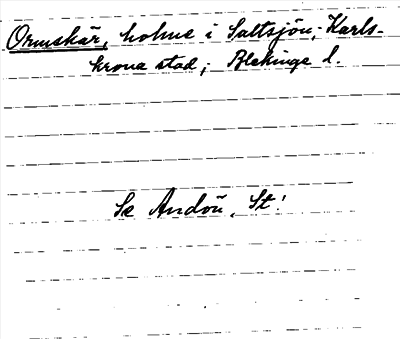 Ormskär, holme i Saltsjön; Karls-
krona stad; Blekinge l.
Se Andön, St!